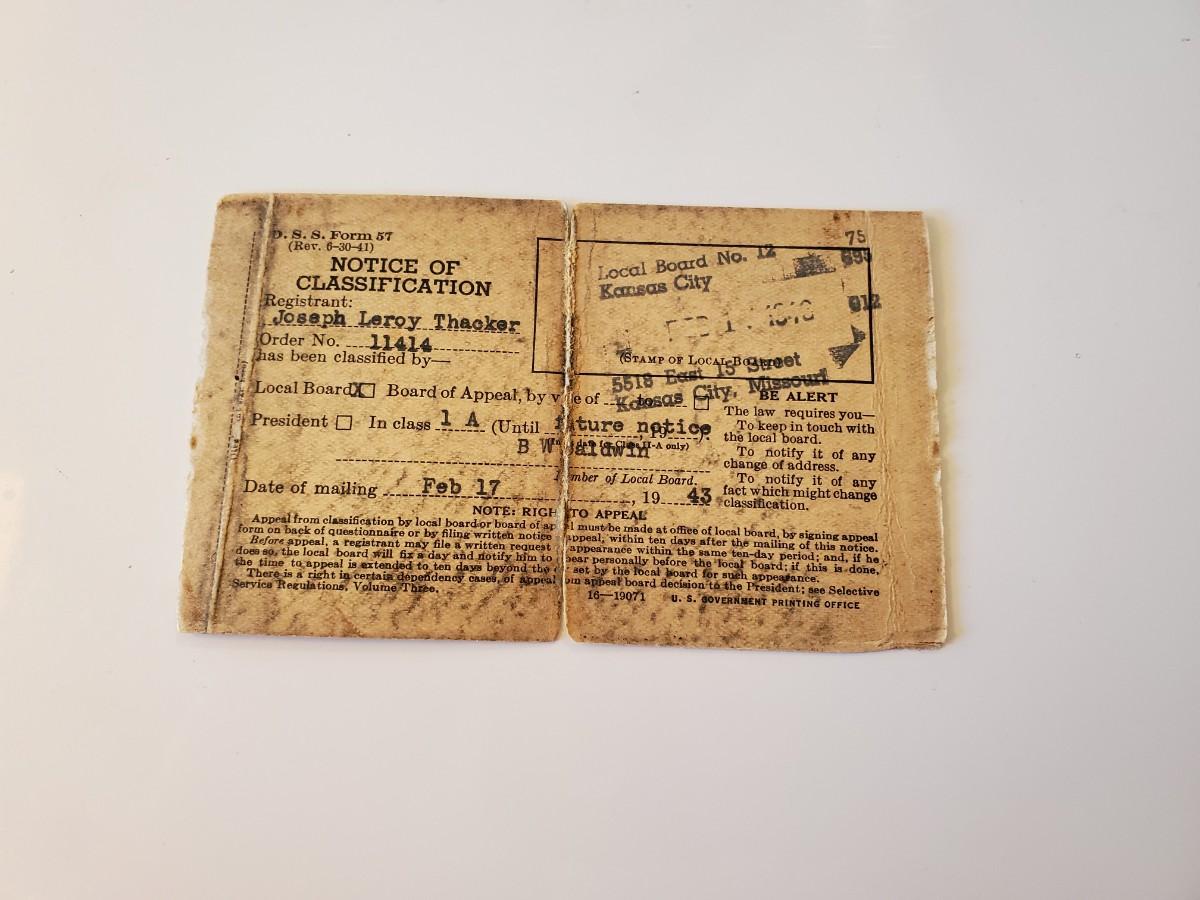 D. S. S. Form 57
(Rev. 6-30-41)
NOTICE OF
CLASSIFICATION
Registrant:
Joseph Leroy Thacker
Order No. 11414
has been classified by—
Local Board X Board of Appeal, by v e of to
President In class 1 A (Until future notice, 19 ).
class II-A only)
B W Baldwin
Member of Local Board.
Date of mailing Feb 17, 19 43
75
Local Board No. 12
Kansas City
912
(STAMP OF LOCAL BOARD)
5518 East 15 Street
Kansas City, Missouri
BE ALERT
The law requires you—
To keep in touch with
the local board.
To notify it of any
change of address.
To notify it of any
fact which might change
classification.
NOTE: RIGH TO APPEAL
Appeal from classification by local board or board of ap l must be made at office of local board, by signing appeal
form on back of questionnaire or by filing written notice appeal, within ten days after the mailing of this notice.
Before appeal, a registrant may file a written request appearance within the same ten-day period; and, if he
does so, the local board will fix a day and notify him to ear personally before the local board; if this is done,
the time to appeal is extended to ten days beyond the set by the local board for such appearance.
There is a right in certain dependency cases, of appeal om appeal board decision to the President; see Selective
Service Regulations, Volume Three.
16—19071 U. S. GOVERNMENT PRINTING OFFICE